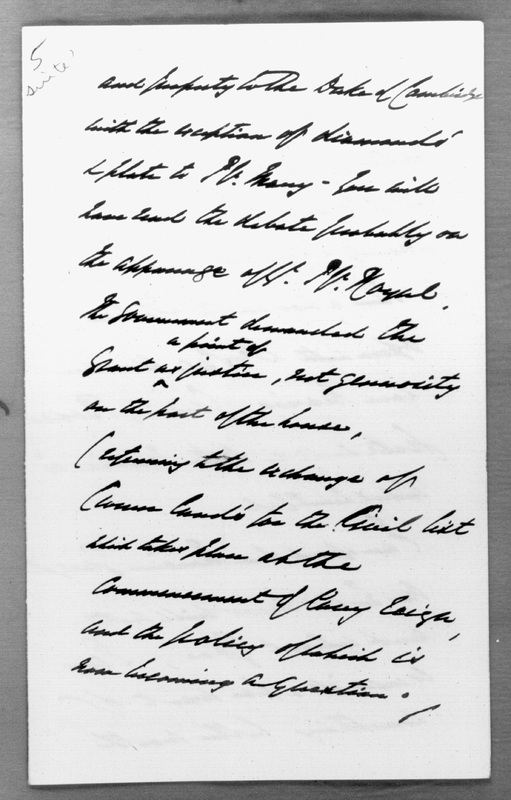 5
suite
and property to the Duke of Cambridge
with the exception of diamonds
& plate to Ps. Mary – You will
have read the debate probably on
the appanage of Ps. Royal.
the Government demanded the
a point of
Grant as justice, not generosity
on the part of the house,
(returning to the exchange of
Crown lands for the Civil list
which takes place at the
commencement of every reign,
and the policy of which is
now becoming a question.